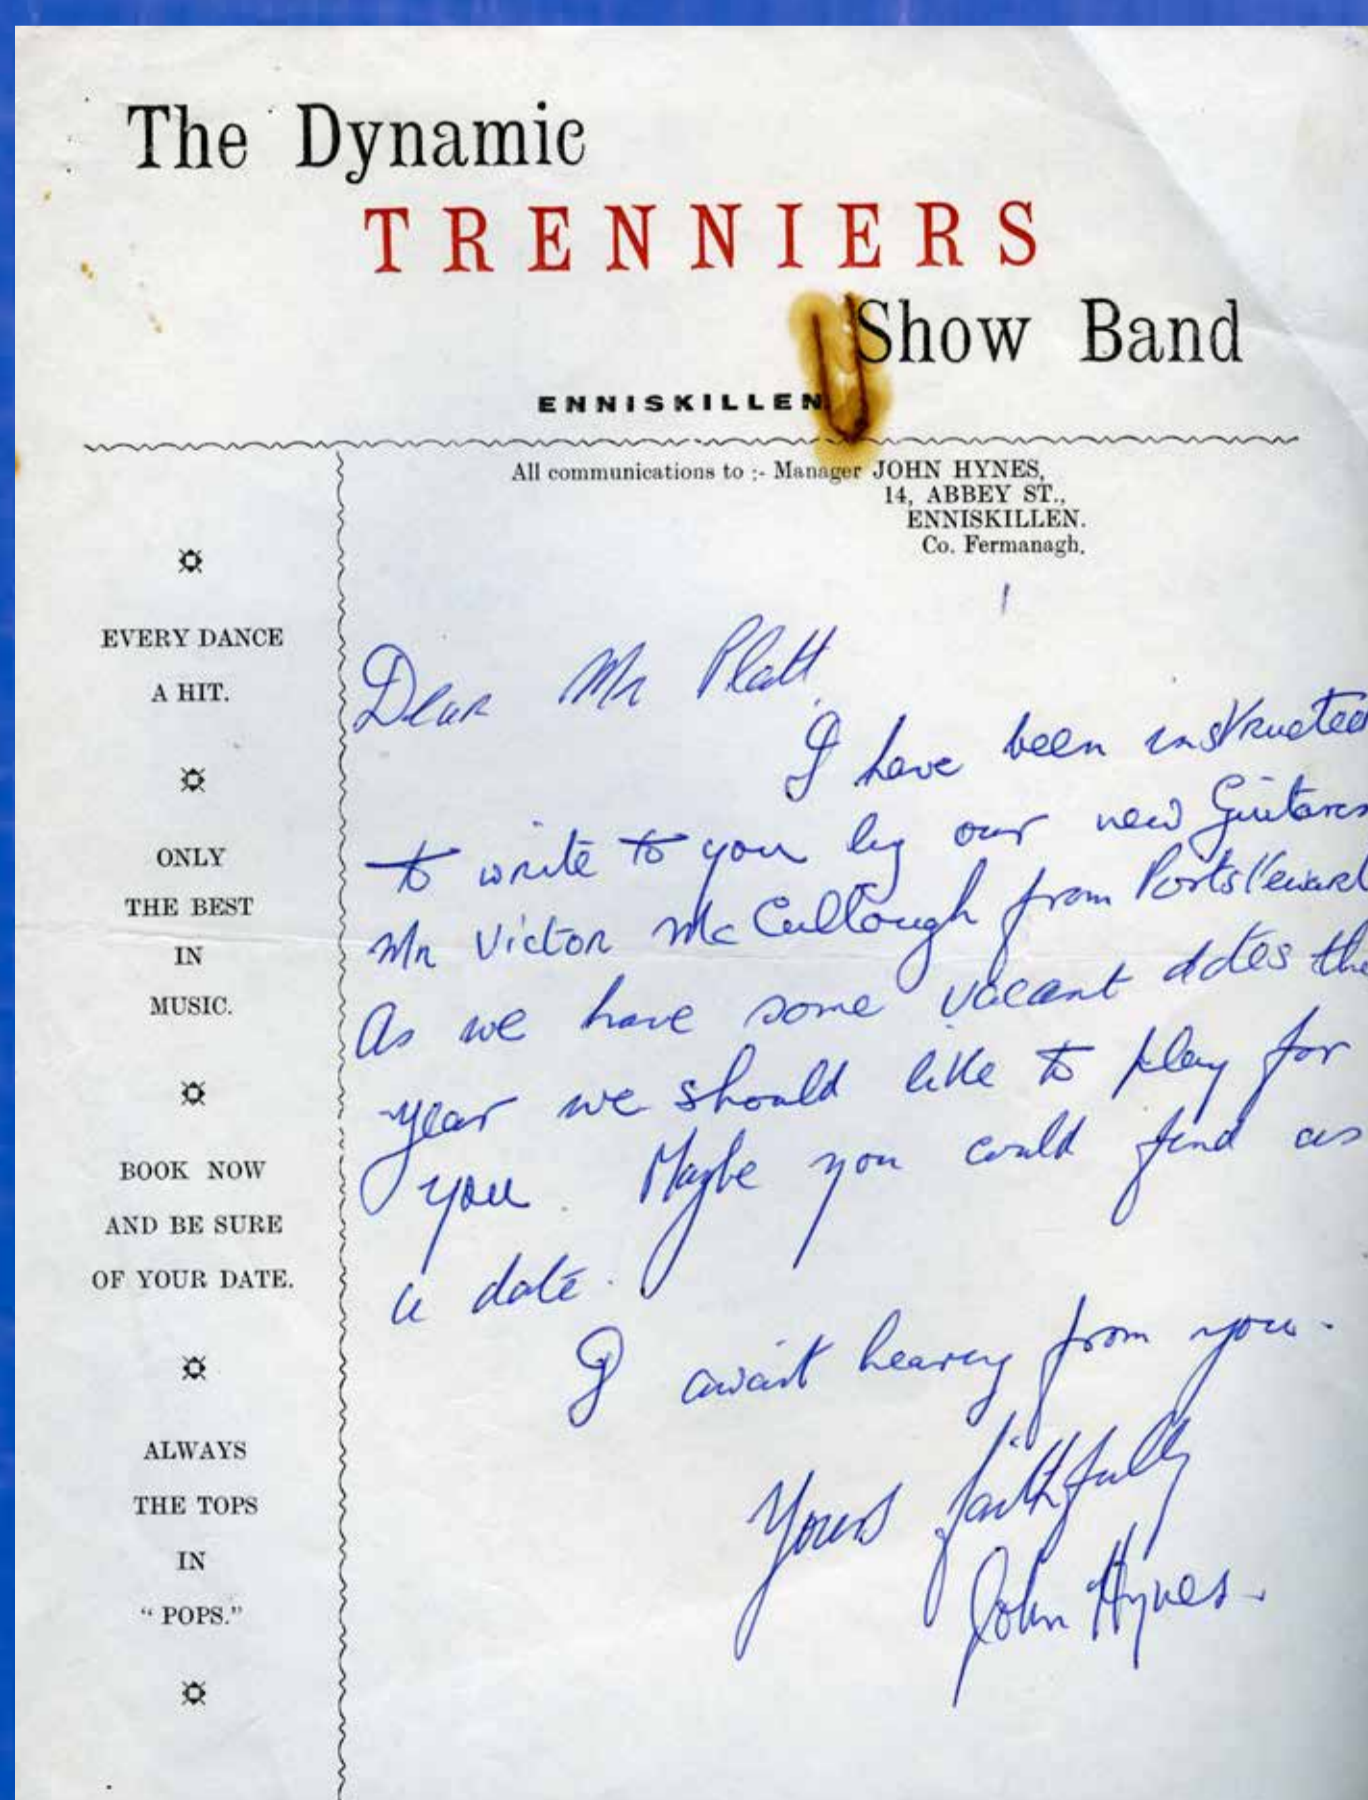 The Dynamic
TRENNIERS
Show Band
ENNISKILLEN
All communications to :- Manager JOHN HYNES,
14, ABBEY ST.,
ENNISKILLEN.
Co. Fermanagh.
EVERY DANCE
A HIT.
ONLY
THE BEST
IN
MUSIC.
BOOK NOW
AND BE SURE
OF YOUR DATE.
ALWAYS
THE TOPS
IN
“ POPS.”
Dear Mr Platt
I have been instructed
to write to you by our new
Mr Victor McCullough from Portstewart
As we have some vacant dates
year we should like to play for
you. Maybe you could find us
a date.
I await hearing from you.
Yours faithfully
John Hynes.